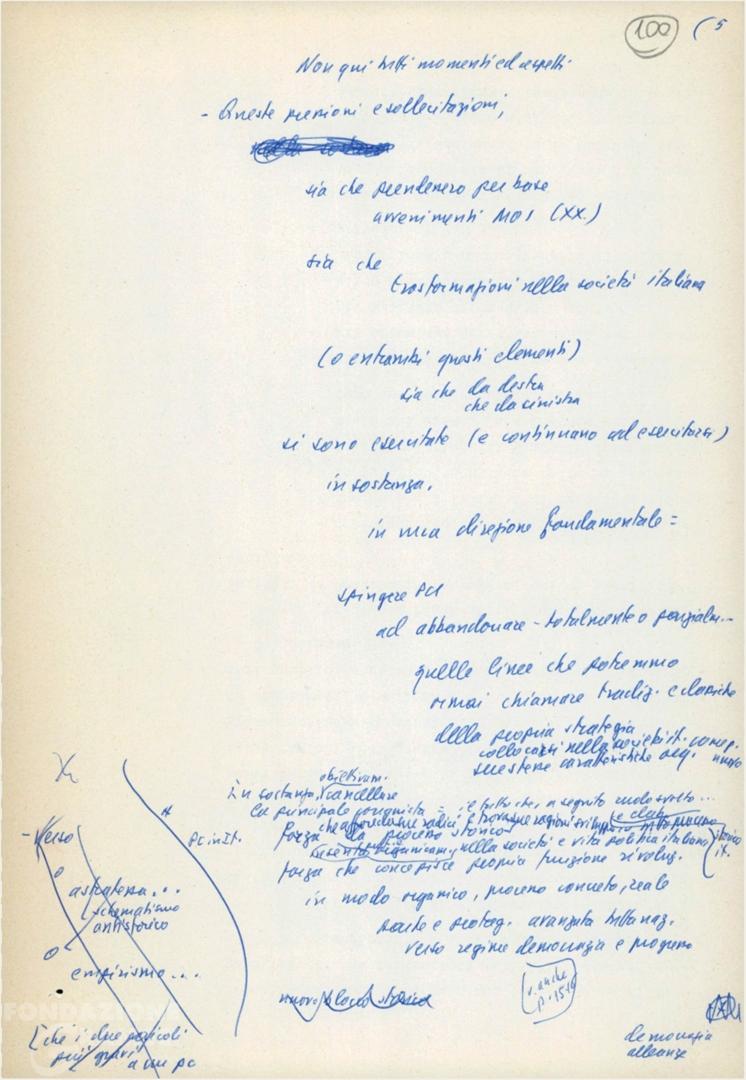 100 (5
Non qui tutti momenti ed aspetti
- Queste pressioni e sollecitazioni,
sia che prendessero per base
avvenimenti MOI (XX.)
sia che
trasformazioni nella società italiana
(o entrambi questi elementi)
sia che da destra
che da sinistra
si sono esercitate (e continuano ad esercitarsi)
in sostanza,
in una direzione fondamentale =
spingere PCI
ad abbandonare - totalmente o parzialm. -
quelle linee che potremmo
ormai chiamare tradiz. e classiche
della propria strategia
collocarsi nella società it.
sue stesse caratteristiche
obiettivam.
In sostanza, cancellare
la principale conquista = è tutto che, a seguito
forza che
da processo storico
nella società e vita politica italiana
forza che concepisce propria funzione rivoluz.
in modo organico, processo concreto, reale
parte e protag. avanzata tutta naz.
verso regime democrazia e progresso
nuovo blocco storico
v. anche
p. 15-16
PC in It.
- Verso
astrattezza...
schematismo
antistorico
empirismo...
[che i due pericoli
più gravi
a un PC
democrazia
alleanze
FONDAZIONE